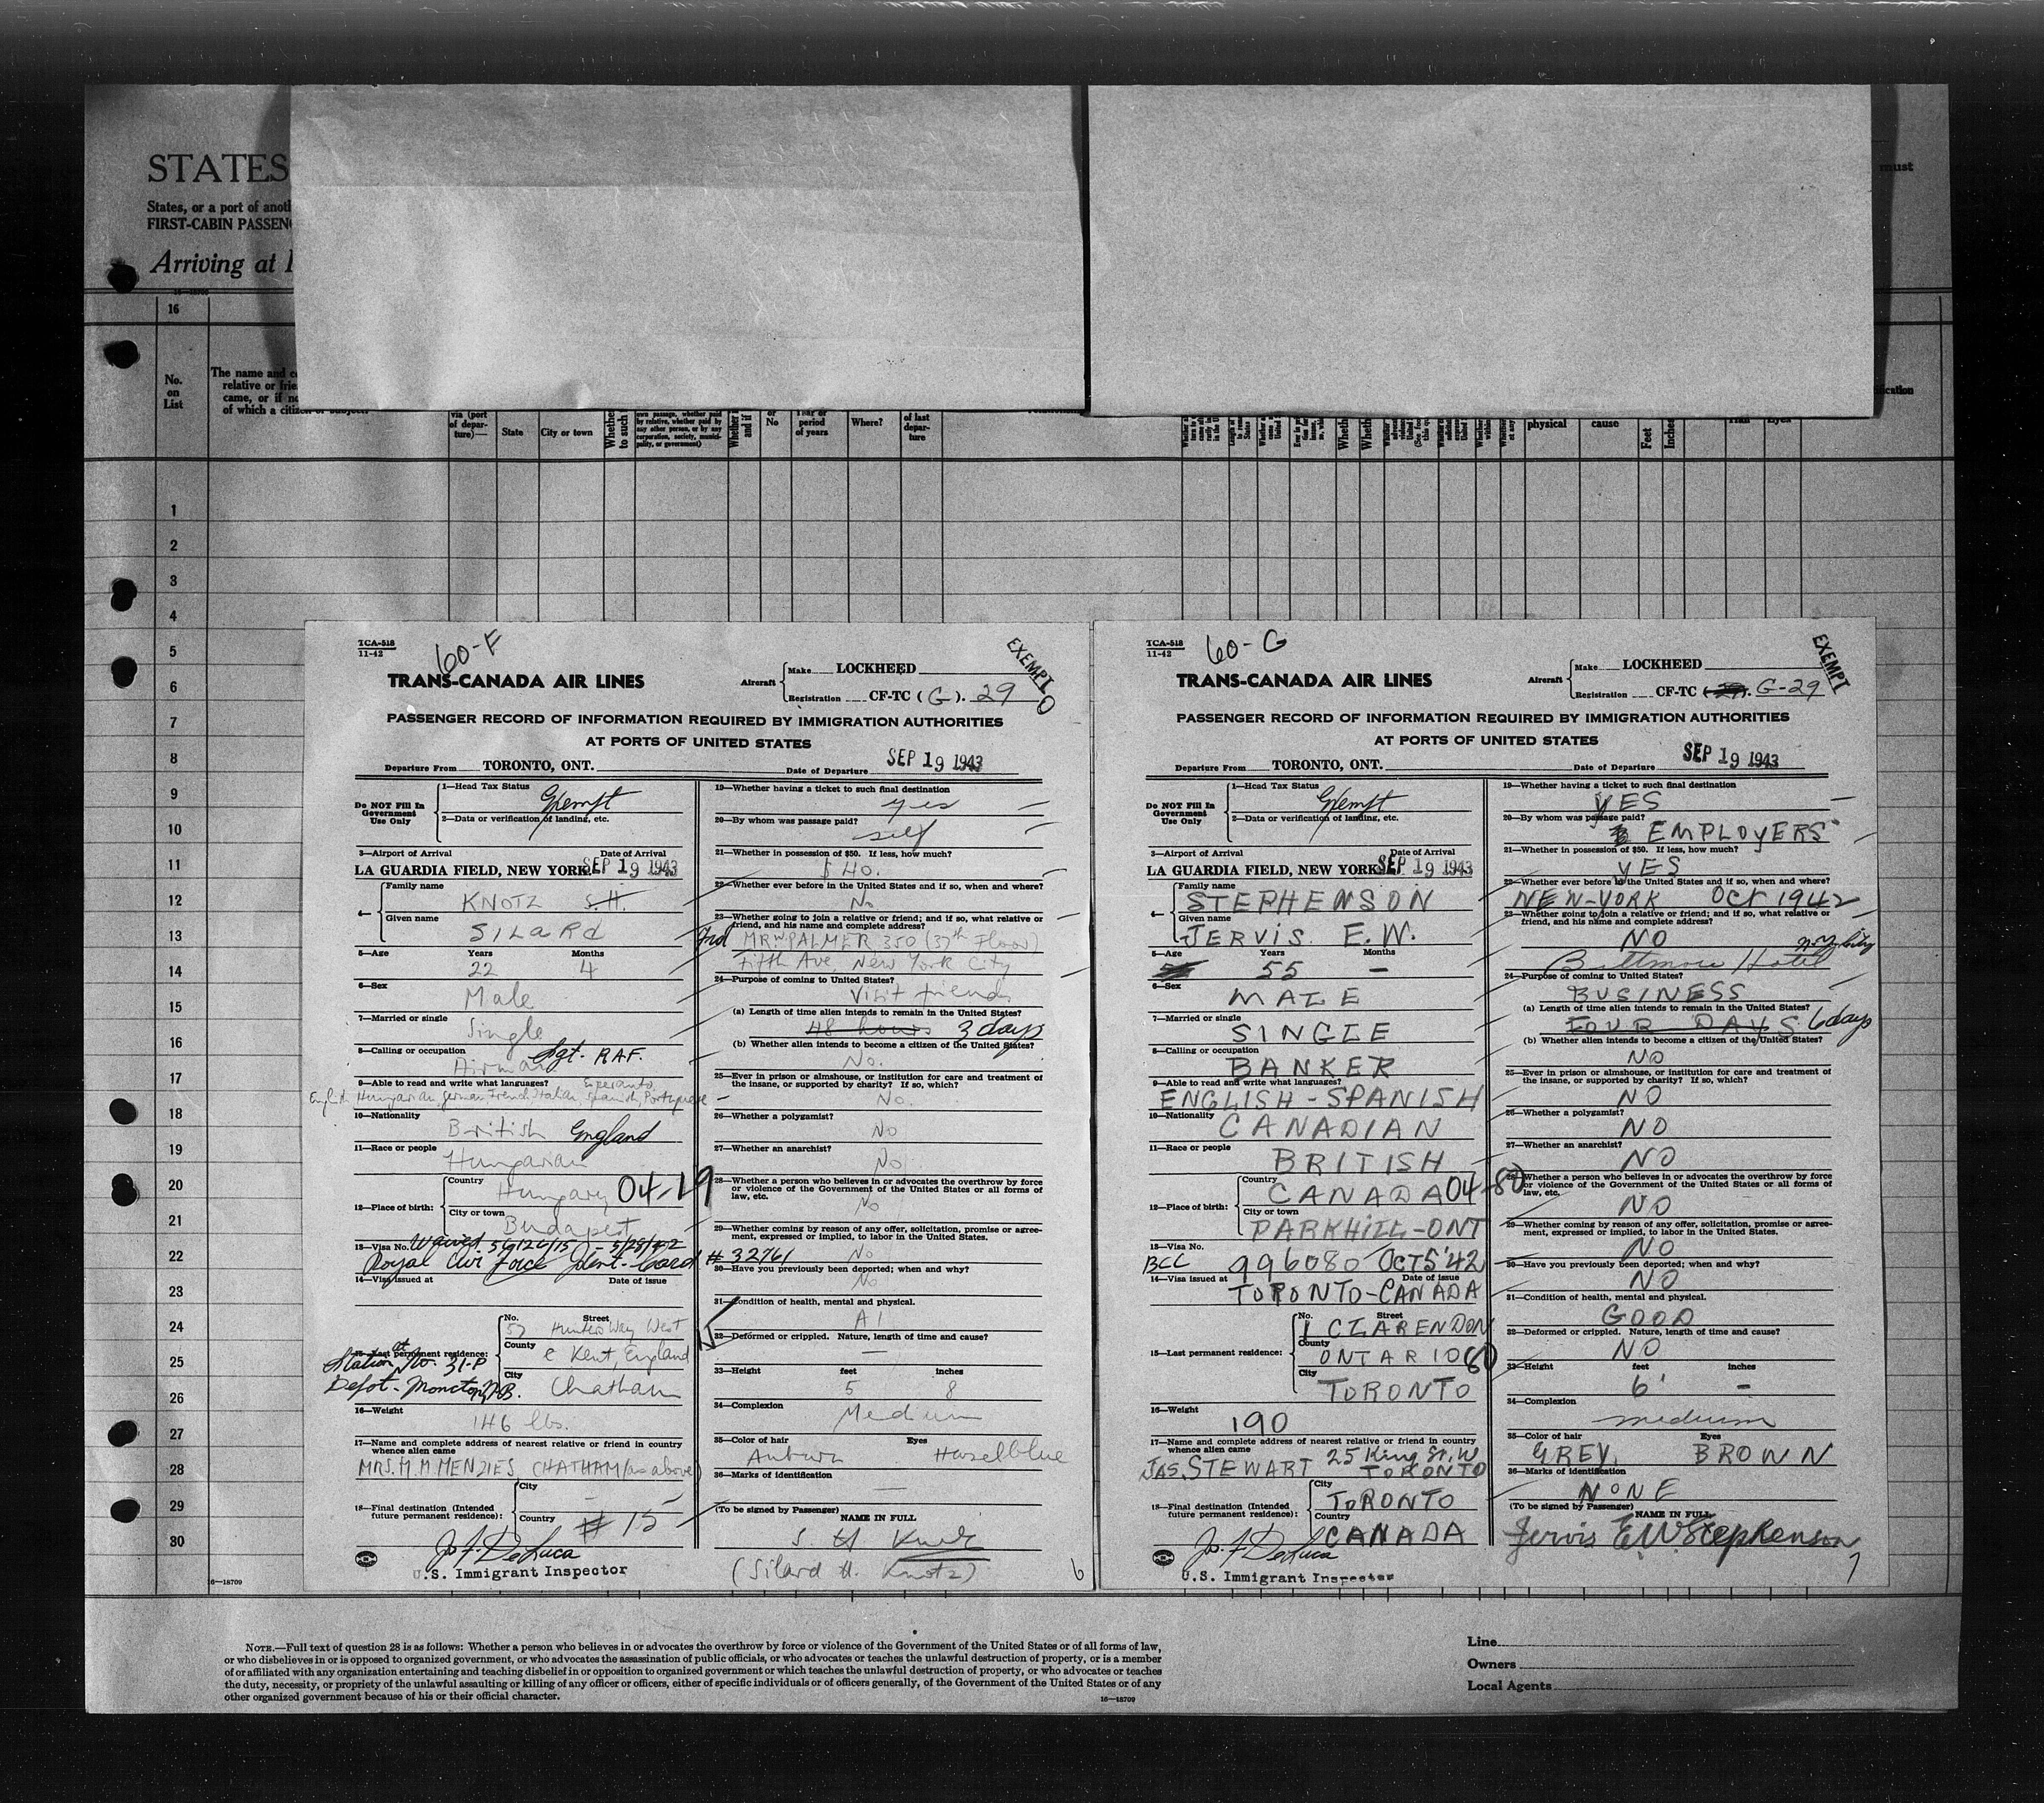 STATES
States, or a port of anoth
FIRST-CABIN PASSENG
Arriving at
must
16—18709
16
No.
on
List
The name and c
relative or frie
came, or if no
of which a citizen or subject
via (port
of depar-
ture)—
State
City or town
Whether
to such
own passage, whether paid
by relative, whether paid by
any other person, or by any
corporation, society, munici-
pality, or government)
Whether
and if
or
No
Year or
period
of years
Where?
of last
depar-
ture
physical
cause
Feet
Inches
1
2
3
4
5
6
7
8
9
10
11
12
13
14
15
16
17
18
19
20
21
22
23
24
25
26
27
28
29
30
TCA-518
11-42
60-F
EXEMPT
TRANS-CANADA AIR LINES
Aircraft
Make LOCKHEED
Registration CF-TC (G). 29
PASSENGER RECORD OF INFORMATION REQUIRED BY IMMIGRATION AUTHORITIES
AT PORTS OF UNITED STATES
Departure From TORONTO, ONT. Date of Departure SEP 19 1943
Do NOT Fill In
Government
Use Only
1—Head Tax Status Exempt
2—Data or verification of landing, etc.
3—Airport of Arrival Date of Arrival
LA GUARDIA FIELD, NEW YORK. SEP 19 1943
4—
Family name
KNOTZ S.H.
Given name
SILARD
5—Age Years Months
22 4
6—Sex
Male
7—Married or single
Single
8—Calling or occupation
Airman Sgt. RAF.
9—Able to read and write what languages? Esperanto,
English Hungarian, German French Italian, Spanish, Portuguese
10—Nationality
British England
11—Race or people
Hungarian
12—Place of birth:
Country
Hungary 04-19
City or town
Budapest
13—Visa No. Waived 56126/75 - 5/28/42
Royal Air Force Ident. Card #32761
14—Visa issued at Date of issue
15—Last permanent residence:
at Station No. 31-P
Depot - Moncton, N.B.
No. Street
57 Hunters Way West
County
Kent, England
City
Chatham
16—Weight
146 lbs.
17—Name and complete address of nearest relative or friend in country
whence alien came
MRS. M. M. MENZIES, CHATHAM (as above)
18—Final destination (Intended
future permanent residence):
City
—
Country
# 15
Jo. F. DeLuca
U.S. Immigrant Inspector
19—Whether having a ticket to such final destination
yes
20—By whom was passage paid?
self
21—Whether in possession of $50. If less, how much?
$40.
22—Whether ever before in the United States and if so, when and where?
No
23—Whether going to join a relative or friend; and if so, what relative or
friend, and his name and complete address?
Frd MR W. PALMER 350 (37th Floor)
Fifth Ave New York City
24—Purpose of coming to United States?
Visit friends
(a) Length of time alien intends to remain in the United States?
48 hours 3 days
(b) Whether alien intends to become a citizen of the United States?
No.
25—Ever in prison or almshouse, or institution for care and treatment of
the insane, or supported by charity? If so, which?
No.
26—Whether a polygamist?
No
27—Whether an anarchist?
No
28—Whether a person who believes in or advocates the overthrow by force
or violence of the Government of the United States or all forms of
law, etc.
No
29—Whether coming by reason of any offer, solicitation, promise or agree-
ment, expressed or implied, to labor in the United States.
No
30—Have you previously been deported; when and why?
No
31—Condition of health, mental and physical.
A1
32—Deformed or crippled. Nature, length of time and cause?
—
33—Height feet inches
5 8
34—Complexion
Medium
35—Color of hair Eyes
Auburn Haselblue
36—Marks of identification
—
(To be signed by Passenger)
NAME IN FULL
S H Knotz
(Silard H. Knotz)
6
TCA-518
11-42
60-G
EXEMPT
TRANS-CANADA AIR LINES
Aircraft
Make LOCKHEED
Registration CF-TC G-29
PASSENGER RECORD OF INFORMATION REQUIRED BY IMMIGRATION AUTHORITIES
AT PORTS OF UNITED STATES
Departure From TORONTO, ONT. Date of Departure SEP 19 1943
Do NOT Fill In
Government
Use Only
1—Head Tax Status Exempt
2—Data or verification of landing, etc.
3—Airport of Arrival Date of Arrival
LA GUARDIA FIELD, NEW YORK. SEP 19 1943
4—
Family name
STEPHENSON
Given name
JERVIS E.W.
5—Age Years Months
55 —
6—Sex
MALE
7—Married or single
SINGLE
8—Calling or occupation
BANKER
9—Able to read and write what languages?
ENGLISH-SPANISH
10—Nationality
CANADIAN
11—Race or people
BRITISH
12—Place of birth:
Country
CANADA 04-80
City or town
PARKHILL-ONT
13—Visa No.
BCC 996080 OCT 5 '42
14—Visa issued at Date of issue
TORONTO-CANADA
15—Last permanent residence:
No. Street
1 CLARENDON
County
ONTARIO 60
City
TORONTO
16—Weight
190
17—Name and complete address of nearest relative or friend in country
whence alien came 25 King St. W
JAS. STEWART TORONTO
18—Final destination (Intended
future permanent residence):
City
TORONTO
Country
CANADA
Jo. F. DeLuca
U.S. Immigrant Inspector
19—Whether having a ticket to such final destination
YES
20—By whom was passage paid?
EMPLOYERS
21—Whether in possession of $50. If less, how much?
YES
22—Whether ever before in the United States and if so, when and where?
NEW-YORK OCT 1942
23—Whether going to join a relative or friend; and if so, what relative or
friend, and his name and complete address?
NO N.Y. City
Biltmore Hotel
24—Purpose of coming to United States?
BUSINESS
(a) Length of time alien intends to remain in the United States?
FOUR DAYS 6 days
(b) Whether alien intends to become a citizen of the United States?
NO
25—Ever in prison or almshouse, or institution for care and treatment of
the insane, or supported by charity? If so, which?
NO
26—Whether a polygamist?
NO
27—Whether an anarchist?
NO
28—Whether a person who believes in or advocates the overthrow by force
or violence of the Government of the United States or all forms of
law, etc.
NO
29—Whether coming by reason of any offer, solicitation, promise or agree-
ment, expressed or implied, to labor in the United States.
NO
30—Have you previously been deported; when and why?
NO
31—Condition of health, mental and physical.
GOOD
32—Deformed or crippled. Nature, length of time and cause?
NO
33—Height feet inches
6' —
34—Complexion
medium
35—Color of hair Eyes
GREY. BROWN
36—Marks of identification
NONE
(To be signed by Passenger)
NAME IN FULL
Jervis E W Stephenson
7
16—18709
NOTE.—Full text of question 28 is as follows: Whether a person who believes in or advocates the overthrow by force or violence of the Government of the United States or of all forms of law,
or who disbelieves in or is opposed to organized government, or who advocates the assassination of public officials, or who advocates or teaches the unlawful destruction of property, or is a member
of or affiliated with any organization entertaining and teaching disbelief in or opposition to organized government or which teaches the unlawful destruction of property, or who advocates or teaches
the duty, necessity, or propriety of the unlawful assaulting or killing of any officer or officers, either of specific individuals or of officers generally, of the Government of the United States or of any
other organized government because of his or their official character.
16—18709
Line
Owners
Local Agents